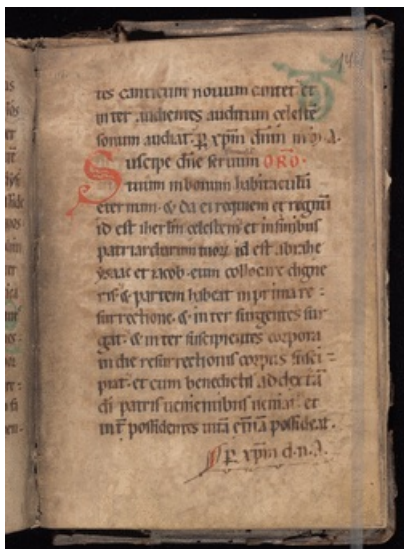 tes canticum nouum cantet et
inter audientes auditum celestē
sonum audiat. P xp̄m dn̄m
Suscipe dn̄e seruum ORO.
tuum in bonum habitaculū
eternum. & da ei requiem et regnū
id est iherl̄m celestem et in sinibus
patriarcharum tuorū id est abrahe
ysaac et iacob. eum collocare digne
ris & partem habeat in prima re
surrectione. & inter surgentes sur
gat. & inter suscipientes corpora
in die resurrectionis corpus susci
piat. et cum benedictis ad dextā
dī patris uenientibus ueniat. et
int̄ possidentes uitā et̄nā possideat.
P xp̄m d. n.